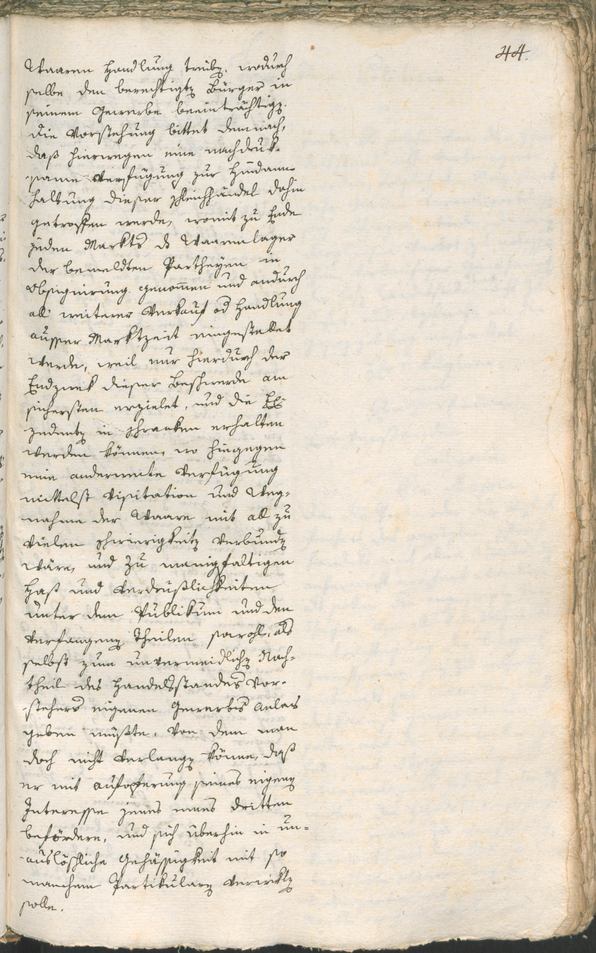 44.
Waaren Handlung treibe, wodurch
selbe den berechtigte Bürger in
seinem Gewerbe beeinträchtige.
Die Vorstehung bittet demnach,
daß hierwegen eine nachdruk-
same Verfügung zur Hindann-
haltung dieser schleichhändel dahin
getroffen werde, womit zu Ende
jeden Markts d Waarenlager
der bemeldten Partheyen in
Obsignirung genommen und andurch
all weiterer Verkauf od Handlung
ausser Marktzeit eingestellet
werde, weil nur hierdurch der
Endzwek dieser Beschwerde am
sichersten erzielet, und die
in Schranken erhalten
werden können, wo hingegen
eine anderweite Verfügung
mittelst Visitation und Weg-
nahme der Waare mit all zu
vielen schwierigkeite verbunde
wäre, und zu manigfältigen
Haß und Verdrüßlichkeiten
unter dem Publikum und den
verfangene Theilen sowohl, als
selbst zum unvermeidliche Nach-
theil des Handelsstandes Vor-
stehers eigenen Gewerbes Anlas
geben müßte, von dem man
doch nicht verlange könne, daß
er mit aufopferung seines eigene
Interesse jenes eines dritten
befördere, und sich überhin in un-
auslöschliche Gehässigkeit mit so
manchem Partikulare
solle.